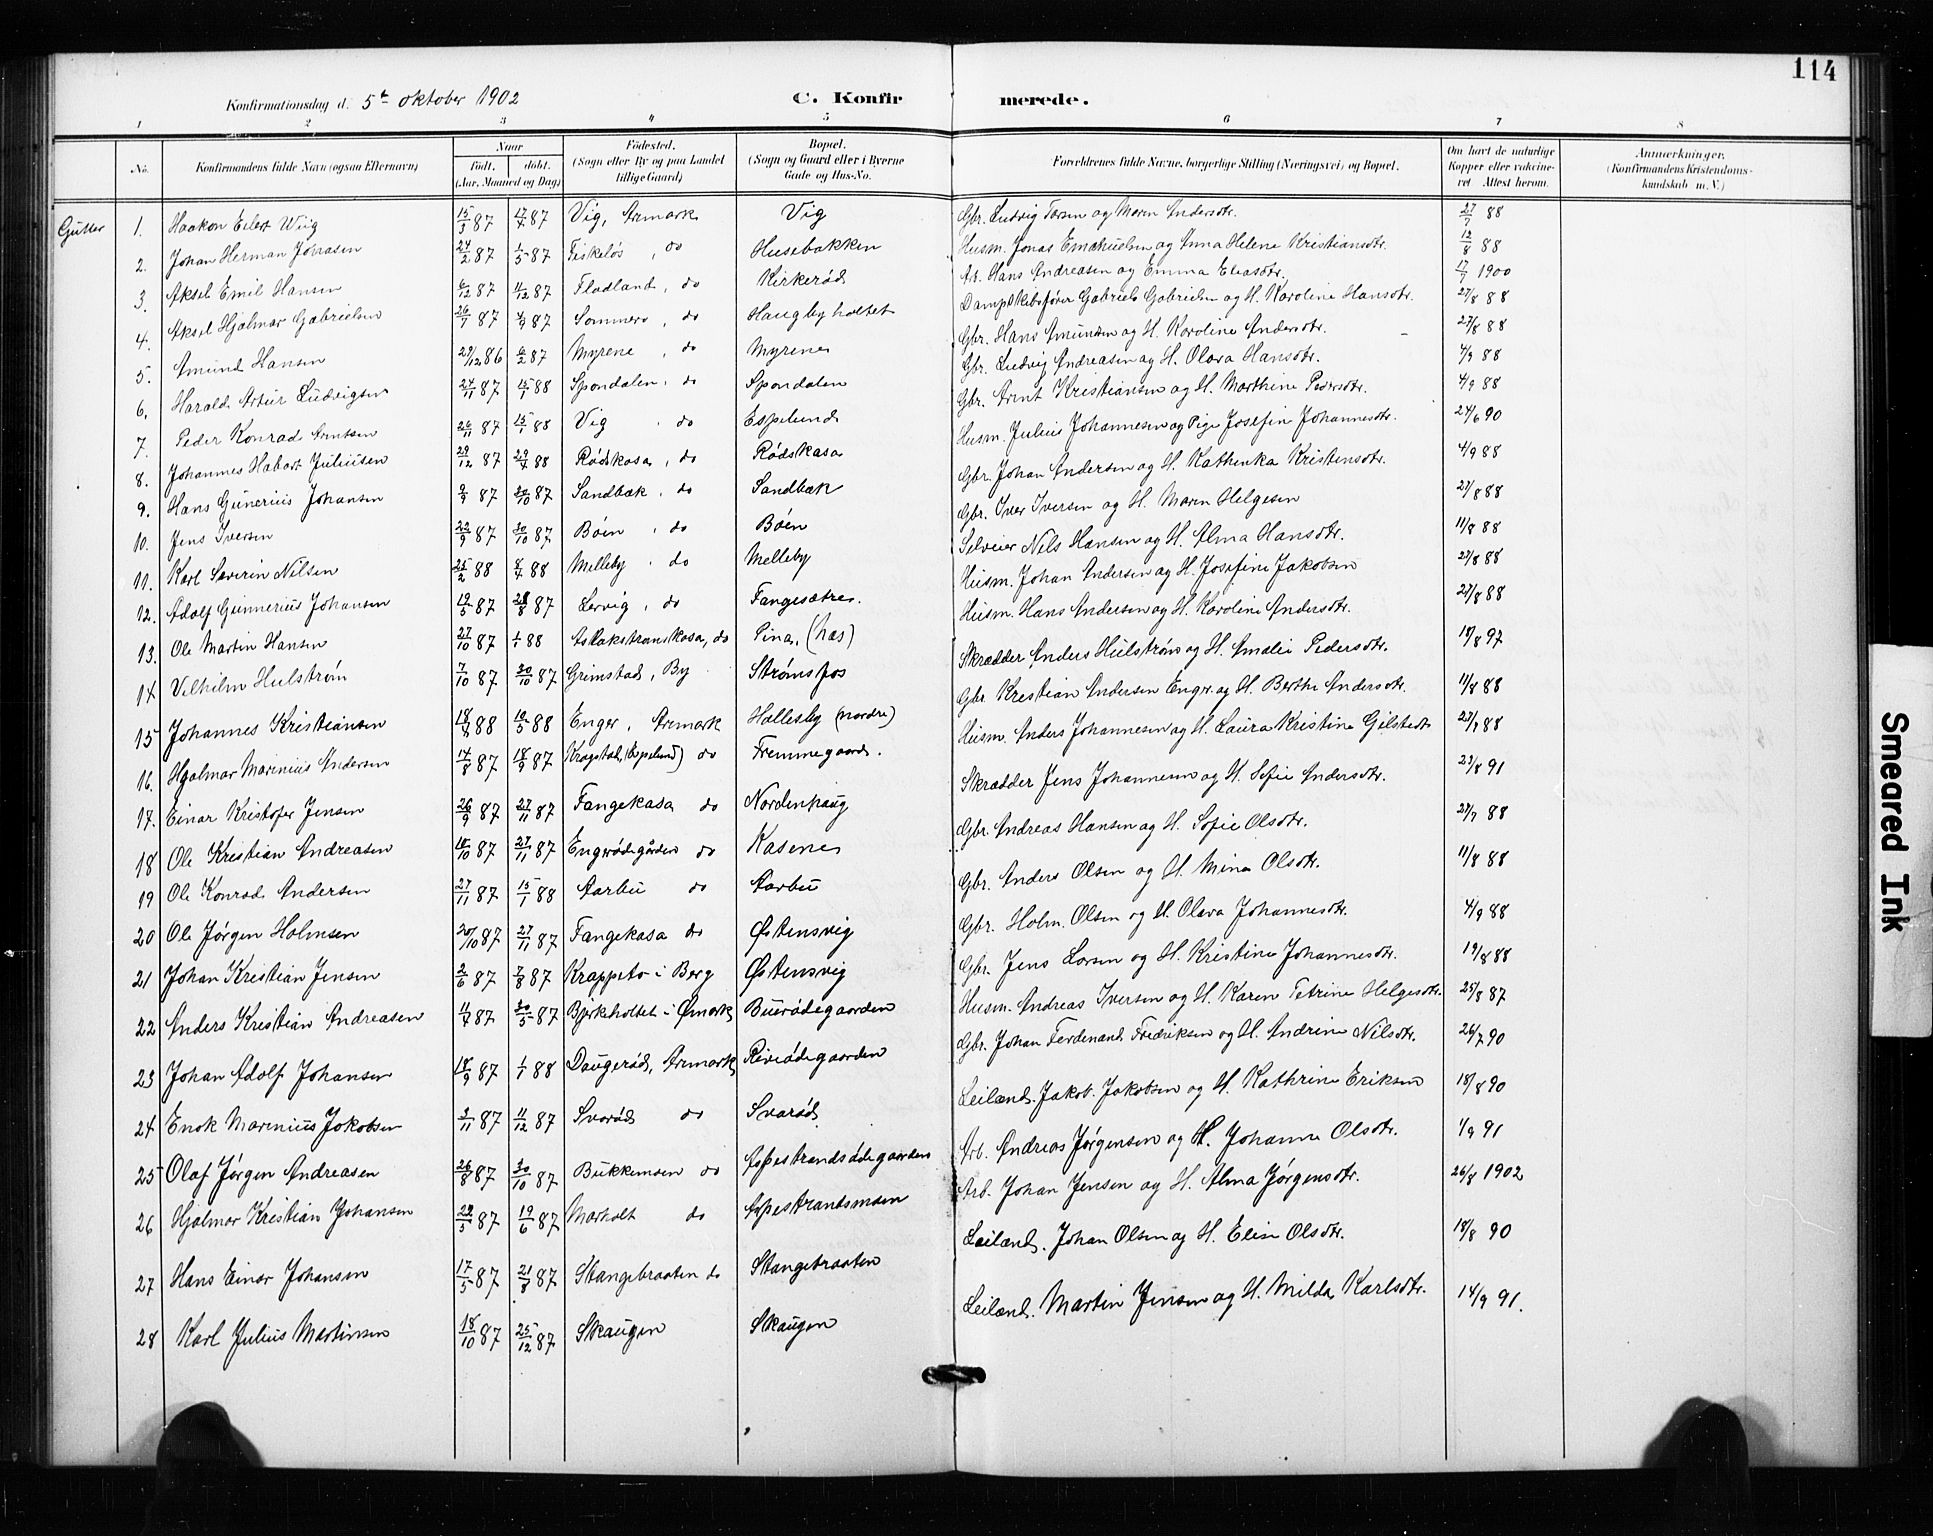 114
Konfirmationsdag d. 5te oktober 1902 C. Konfirmerede.
1 2 3 4 5 6 7 8
No. Konfirmandens fulde Navn (ogsaa Efternavn) Naar født. døbt. (Aar, Maaned og Dag) Fødested. (Sogn eller By og paa Landet tillige Gaard) Bopæl. (Sogn og Gaard eller i Byerne Gade og Hus-No. Forældrenes fulde Navne, borgerlige Stilling (Næringsvei) og Bopæl. Om havt de naturlige Kopper eller vakcineret. Attest herom. Anmærkninger. (Konfirmandens Kristendomskundskab m. V.)
Gutter 1. Haakon Eilert Wiig 15/3 87 17/4 87 Vig, Aremark Vig Gbr. Ludvig Torsen og Maren Andersdtr. 27/7 88
2. Johan Herman Jonasen 24/2 87 1/5 87 Fiskeløs, do Husebakken Husm. Jonas Emanuelsen og Anna Helene Kristiansdtr. 12/8 88
3. Aksel Emil Hansen 6/12 87 11/12 87 Fladland, do Kirkerød Arb. Hans Andreasen og Emma Eliasdtr. 17/7 1900
4. Aksel Hjalmar Gabrielsen 26/7 87 4/9 87 Sommero, do Haugbyholtet Dampskibsfører Gabriel Gabrielsen og H. Karoline Hansdtr. 27/8 88
5. Amund Hansen 29/12 86 6/2 87 Myrene, do Myrene Gbr. Hans Amundsen og H. Karoline Andersdtr. 27/8 88
6. Harald Artur Ludvigsen 24/11 87 15/1 88 Spondalen, do Spondalen Gbr. Ludvig Andreasen og H. Olava Hansdtr. 4/9 88
7. Peder Konrad Arntsen 26/11 87 15/1 88 Vig, do Espelund Gbr. Arnt Kristiansen og H. Marthine Pedersdtr. 4/9 88
8. Johannes Habart Juliusen 29/12 87 29/4 88 Rødskasa, do Rødskasa Husm. Julius Johannesen og Pige Josefin Johannesdtr. 24/6 90
9. Hans Gunerius Johansen 9/9 87 30/10 87 Sandbæk, do Sandbæk Gbr. Johan Andersen og H. Kathinka Kristensdtr. 4/9 88
10. Jens Iversen 22/9 87 30/10 87 Bøen, do Bøen Gbr. Iver Iversen og H. Maren Helgesen 27/8 88
11. Karl Severin Nilsen 25/2 88 8/4 88 Melleby, do Melleby Selveier Nils Hansen og H. Alma Hansdtr. 11/8 88
12. Adolf Gunnerius Johansen 19/5 87 28/8 87 Lervig, do Fangesætre. Husm. Johan Andersen og H. Josefine Jakobsen 27/8 88
13. Ole Martin Hansen 27/10 87 1/1 88 Aslakstrømskasa, do Pina, (hæs) Husm. Hans Andersen og H. Karoline Andersdtr. 27/8 88
14 Vilhelm Hulstrøm 7/10 87 30/10 87 Grimstad, By Strømsfos Skrædder Anders Hulstrøm og H. Amalie Pedersdtr. 18/8 97
15 Johannes Kristiansen 18/4 88 10/5 88 Enger, Aremark Hallesby (nordre) Gbr. Kristian Andersen Enger og H. Berthe Andersdtr. 11/8 88
16. Hjalmar Marinius Andersen 14/8 87 18/9 87 Kragstad, (Espelund) do Fremmegaard. Husm. Anders Johannesen og H. Laura Kristine Gilstedt 27/7 88
17. Einar Kristofer Jensen 26/9 87 27/11 87 Fangekasa do Nordenhaug Skrædder Jens Johannesen og H. Sofie Andersdtr. 23/8 91
18 Ole Kristian Andreasen 15/10 87 27/11 87 Engerødegården do Kasene Gbr. Andreas Hansen og H. Sofie Olsdtr. 27/7 88
19 Ole Konrad Andersen 27/11 87 15/1 88 Aarbu do Aarbu Gbr. Anders Olsen og H. Mina Olsdtr. 11/8 88
20 Ole Jørgen Holmsen 20/10 87 27/11 87 Fangekasa do Østensvig Gbr. Holm Olsen og H. Olava Johannesdtr. 4/9 88
21 Johan Kristian Jensen 2/6 87 7/8 87 Krappeto i Berg Østensvig Gbr. Jens Larsen og H. Kristine Johannesdtr. 19/8 88
22 Anders Kristian Andreasen 11/4 87 30/5 87 Bjerkholtet i Ømark Buerødegaarden Husm. Andreas Iversen og H. Karen Petrine Helgesdtr. 25/8 87
23 Johan Adolf Johansen 18/9 87 1/1 88 Daugerød, Aremark Riverødegaarden Gbr. Johan Ferdinand Fredriksen og H. Andrine Nilsdtr. 26/7 90
24 Enok Marinius Jakobsen 3/11 87 11/12 87 Svarød do Svarød Leilænd. Jakob Jakobsen og H. Kathrine Eriksen 18/8 90
25 Olaf Jørgen Andreasen 26/8 87 30/10 87 Bukkemoen do Aspestrandsødegaarden Arb. Andreas Jørgensen og H. Johanne Olsdtr. 1/9 91
26 Hjalmar Kristian Johansen 22/5 87 19/6 87 Marholt do Aspestrandsmoen Arb. Johan Jensen og H. Alma Jørgensdtr. 26/8 1902
27 Hans Einar Johansen 17/5 87 21/8 87 Stangebraaten do Stangebraaten Leilænd. Johan Olsen og H. Elise Olsdtr. 18/8 90
28 Karl Julius Martinsen 18/10 87 25/12 87 Skaugen Skaugen Leilænd. Martin Jensen og H. Milda Karlsdtr. 14/9 91.
Smeared Ink